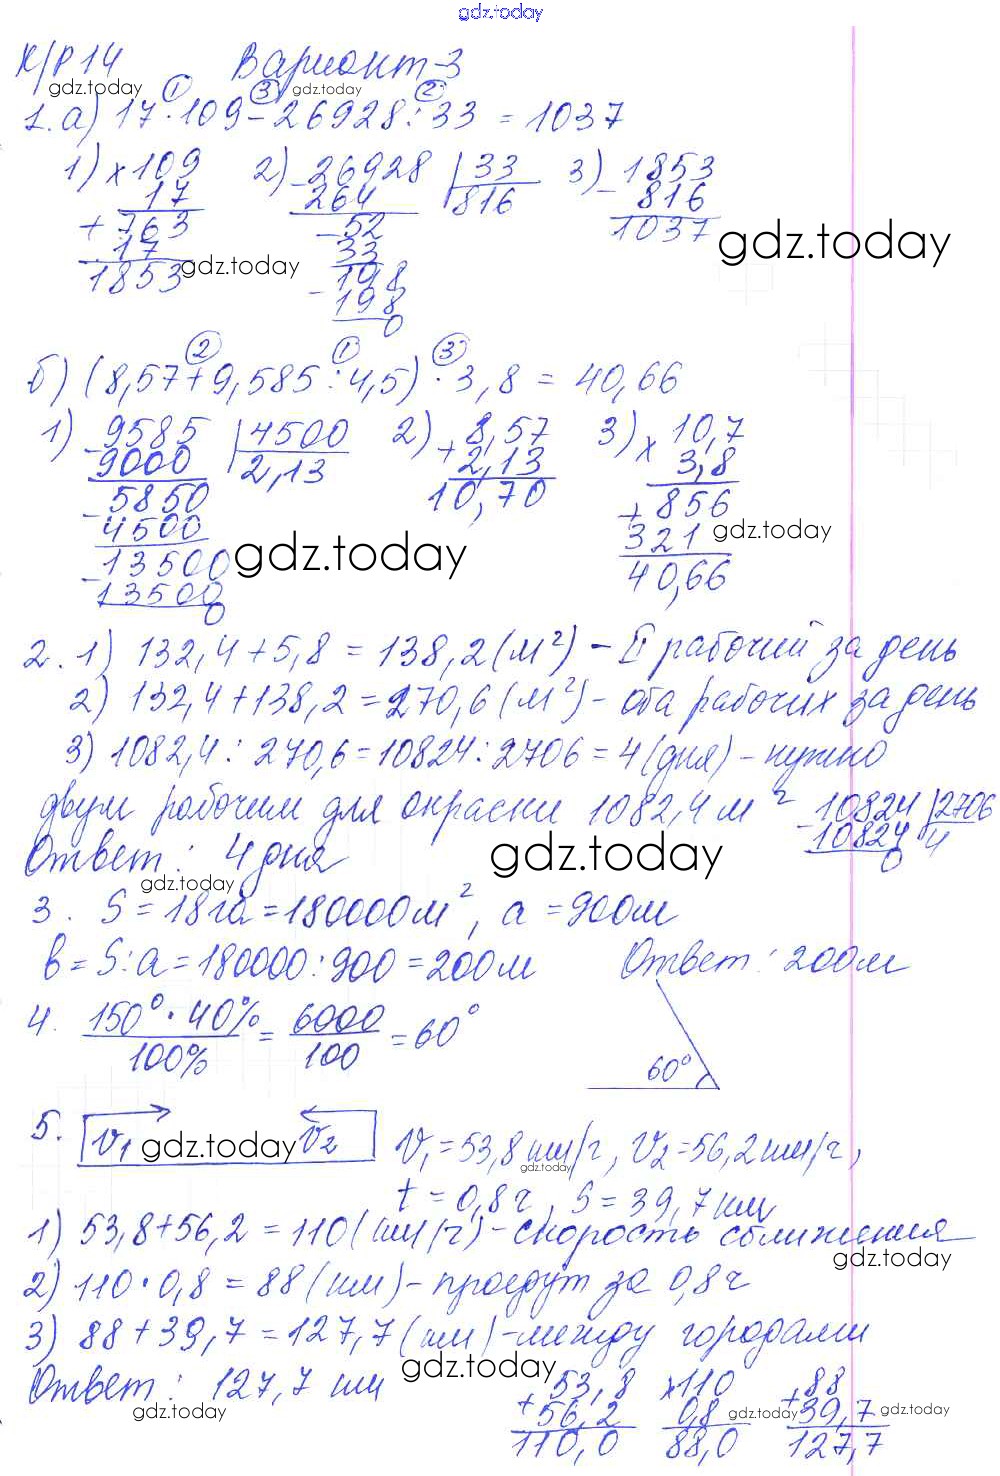 gdz.today
К/Р 14 Вариант-3
gdz.today gdz.today
① ③ ②
1. а) 17 · 109 - 26928 : 33 = 1037
1) × 109 2) - 26928 | 33 3) - 1853
17 264 816 816
+ 763 - 52 1037 gdz.today
17 33
1853 gdz.today - 198
198
0
② ① ③
б) (8,57 + 9,585 : 4,5) · 3,8 = 40,66
1) - 9585 | 4500 2) + 8,57 3) × 10,7
9000 2,13 2,13 3,8
- 5850 10,70 + 856
4500 321 gdz.today
- 13500 gdz.today 40,66
13500
0
2. 1) 132,4 + 5,8 = 138,2 (м²) - II рабочий за день
2) 132,4 + 138,2 = 270,6 (м²) - оба рабочих за день
3) 1082,4 : 270,6 = 10824 : 2706 = 4 (дня) - нужно
двум рабочим для окраски 1082,4 м² - 10824 | 2706
10824 4
0
Ответ: 4 дня gdz.today
gdz.today
3. S = 18 га = 180000 м², a = 900 м
b = S : a = 180000 : 900 = 200 м Ответ: 200 м
4. 150° · 40% / 100% = 6000 / 100 = 60°
60°
5. v₁ gdz.today v₂ v₁ = 53,8 км/ч, v₂ = 56,2 км/ч,
gdz.today
t = 0,8 ч, S = 39,7 км
1) 53,8 + 56,2 = 110 (км/ч) - скорость сближения
gdz.today
2) 110 · 0,8 = 88 (км) - проедут за 0,8 ч
3) 88 + 39,7 = 127,7 (км) - между городами
gdz.today
Ответ: 127,7 км + 53,8 × 110 + 88
gdz.today 56,2 0,8 gdz.today 39,7 gdz.today
110,0 88,0 127,7